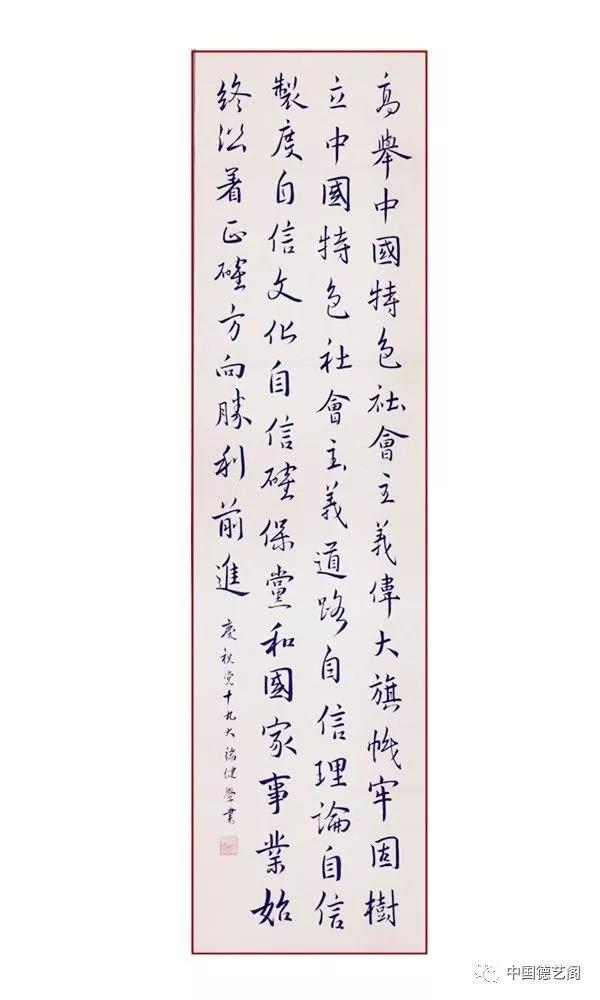 高舉中國特色社會主義偉大旗幟牢固樹
立中國特色社會主義道路自信理論自信
製度自信文化自信確保黨和國家事業始
終沿着正確方向勝利前進
慶祝党十九大瑞健學書
中国德艺阁